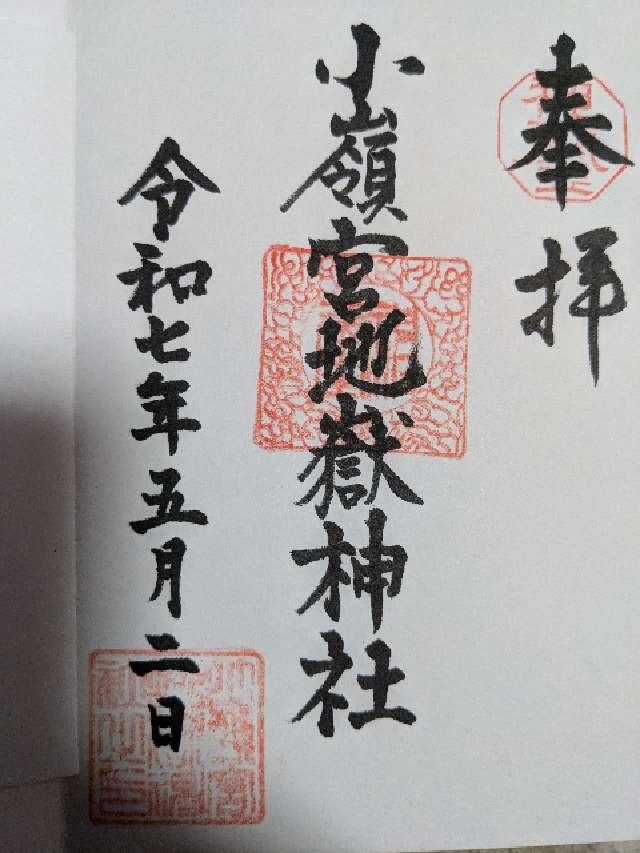 奉拝
小嶺宮地嶽神社
令和七年五月二日